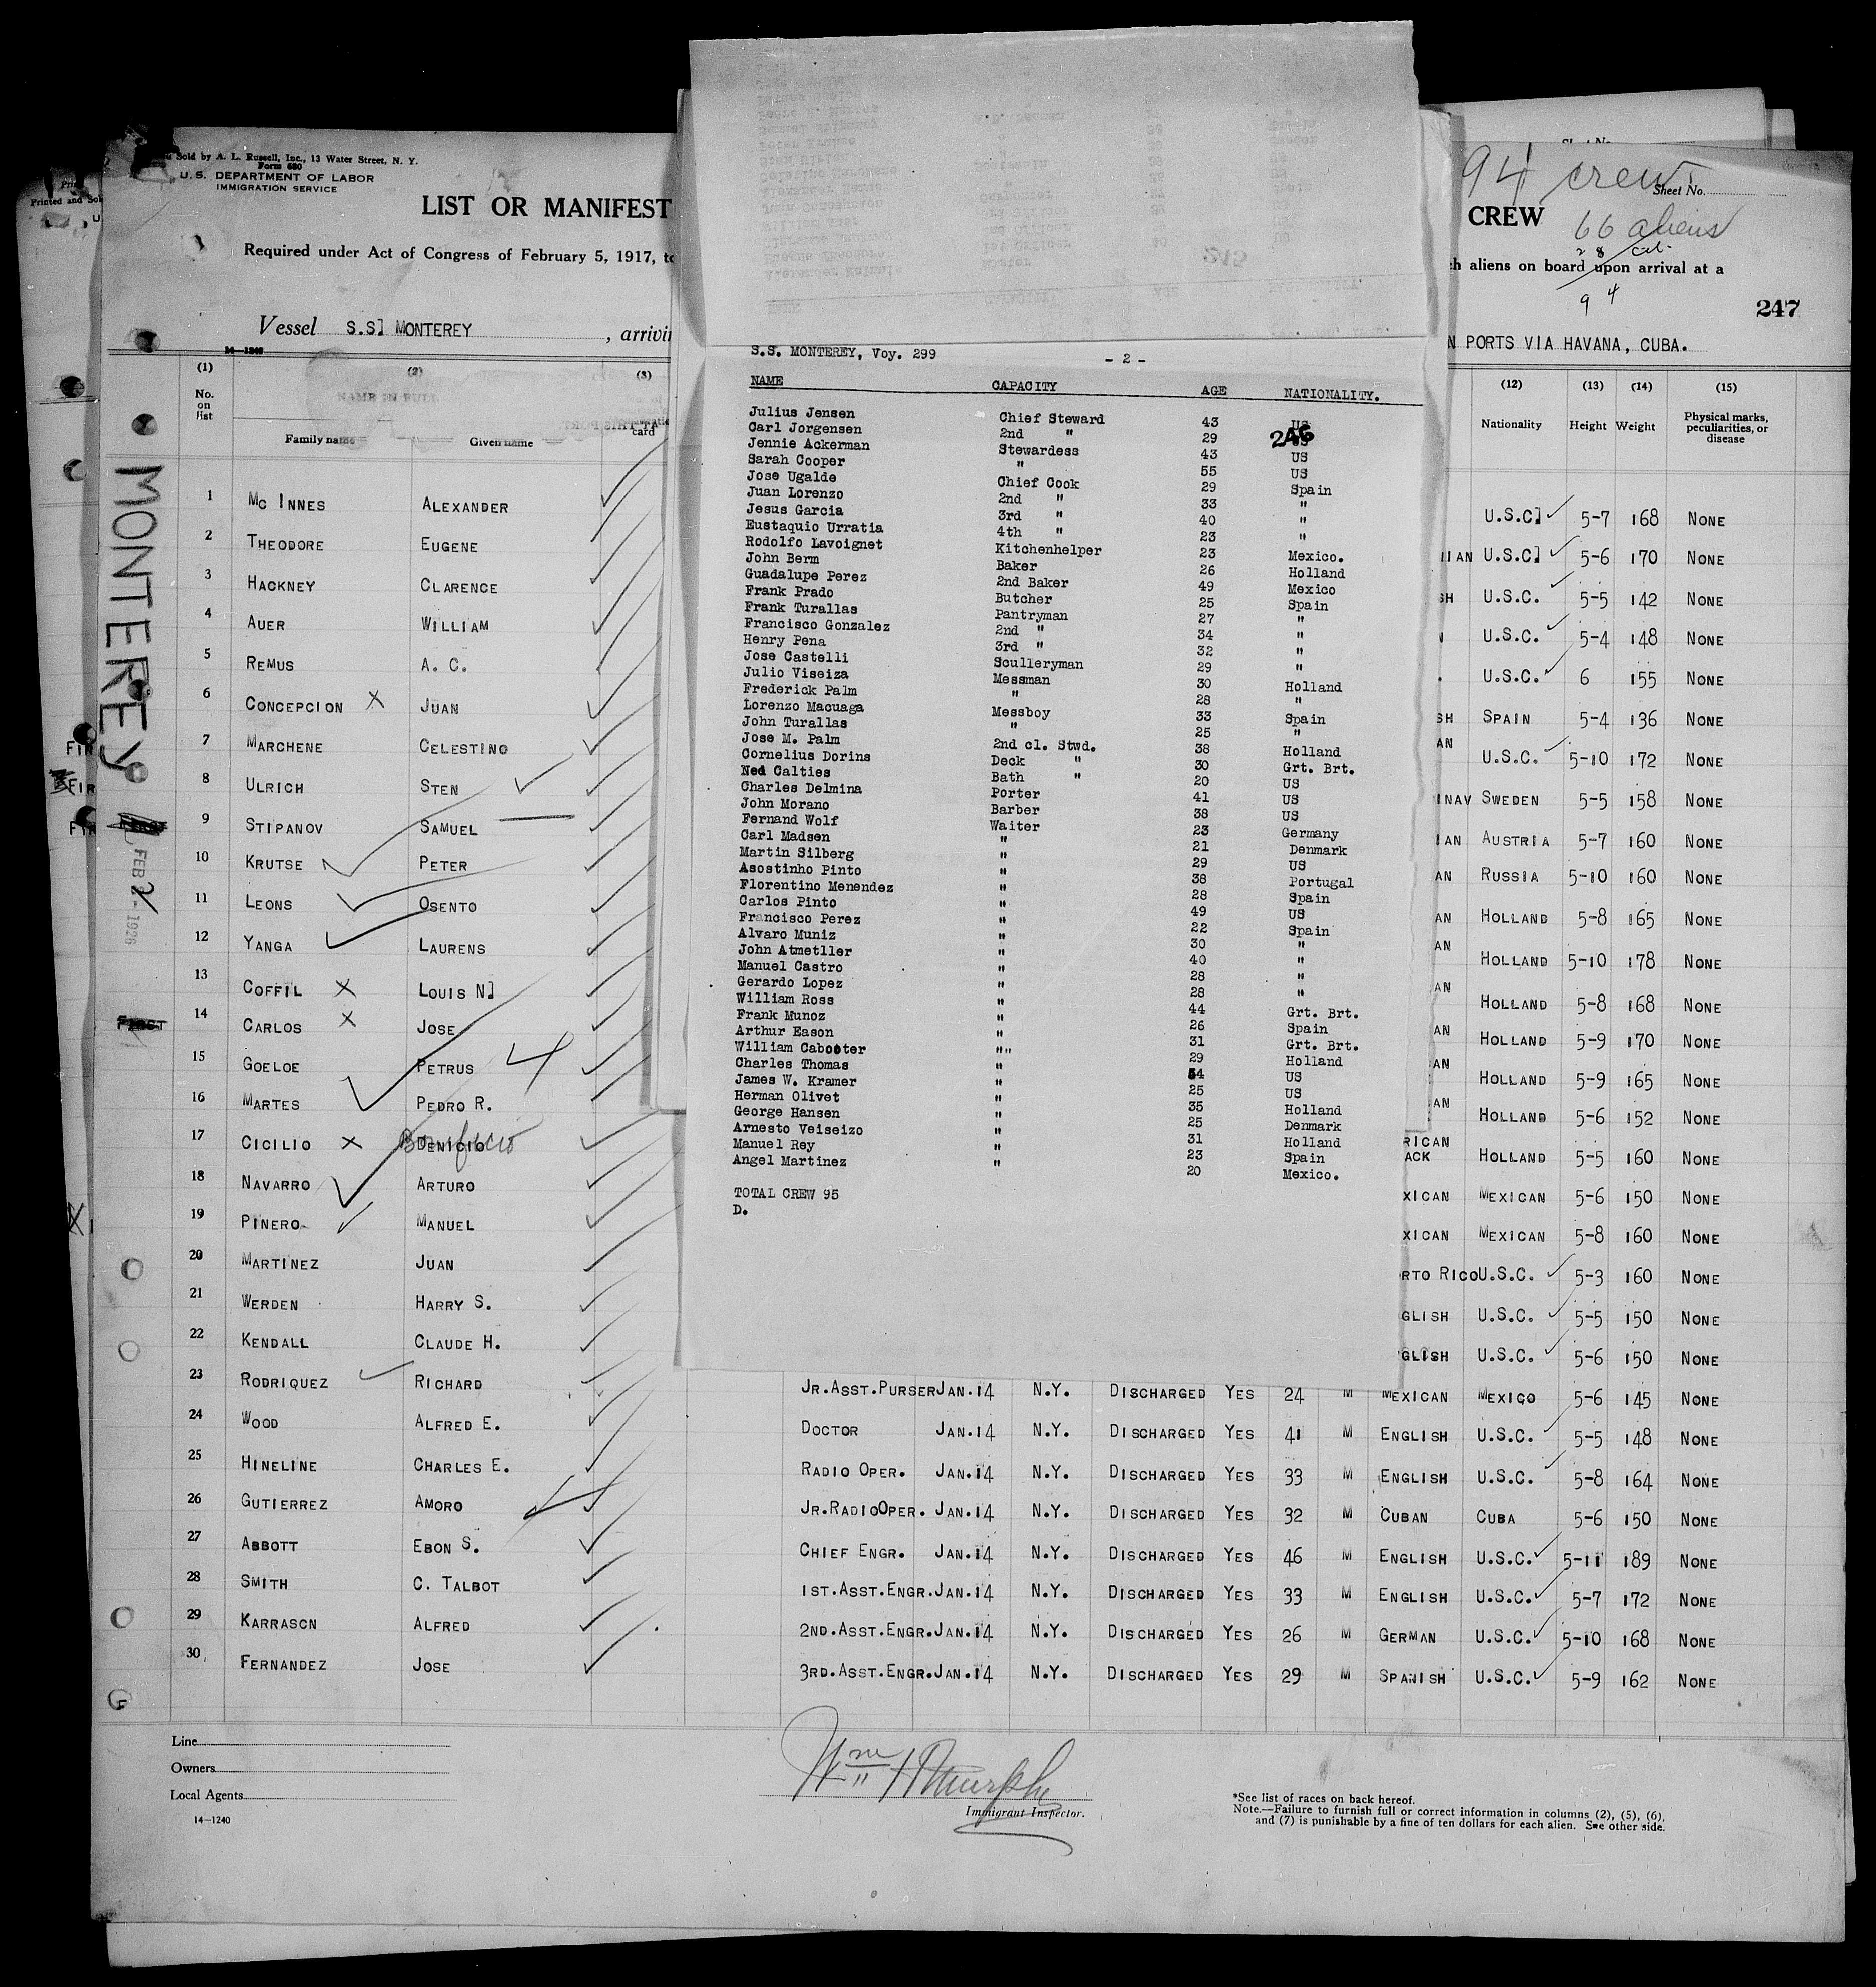 Sold by A. L. Russell, Inc., 13 Water Street, N. Y.
Form 680
U. S. DEPARTMENT OF LABOR
IMMIGRATION SERVICE
Printed and Sol
LIST OR MANIFEST
Required under Act of Congress of February 5, 1917, to
Vessel S.S] MONTEREY , arrivin
94 crew
Sheet No.
CREW
66 aliens
28 cit
h aliens on board upon arrival at a
94
247
N PORTS VIA HAVANA, CUBA.
14-1240
(1) (2) (3)
No. on list
NAME IN FULL
Family name Given name card
(12) (13) (14) (15)
Nationality Height Weight Physical marks, peculiarities, or disease
MONTEREY
FEB 2 - 1926
S.S. MONTEREY, Voy. 299 - 2 -
NAME CAPACITY AGE NATIONALITY.
246
Julius Jensen Chief Steward 43 US
Carl Jorgensen 2nd " 29
Jennie Ackerman Stewardess 43 US
Sarah Cooper " 55 US
Jose Ugalde Chief Cook 29 Spain
Juan Lorenzo 2nd " 33 "
Jesus Garcia 3rd " 40 "
Eustaquio Urratia 4th " 23 "
Rodolfo Lavoignet Kitchenhelper 23 Mexico.
John Berm Baker 26 Holland
Guadalupe Perez 2nd Baker 49 Mexico
Frank Prado Butcher 25 Spain
Frank Turallas Pantryman 27 "
Francisco Gonzalez 2nd " 34 "
Henry Pena 3rd " 32 "
Jose Castelli Sculleryman 29 "
Julio Viseiza Messman 30 Holland
Frederick Palm " 28 "
Lorenzo Macuaga Messboy 33 Spain
John Turallas " 25 "
Jose M. Palm 2nd cl. Stwd. 38 Holland
Cornelius Dorins Deck " 30 Grt. Brt.
Ned Calties Bath " 20 US
Charles Delmina Porter 41 US
John Morano Barber 38 US
Fernand Wolf Waiter 23 Germany
Carl Madsen " 21 Denmark
Martin Silberg " 29 US
Asostinho Pinto " 38 Portugal
Florentino Menendez " 28 Spain
Carlos Pinto " 49 US
Francisco Perez " 22 Spain
Alvaro Muniz " 30 "
John Atmetller " 40 "
Manuel Castro " 28 "
Gerardo Lopez " 28 "
William Ross " 44 Grt. Brt.
Frank Munoz " 26 Spain
Arthur Eason " 31 Grt. Brt.
William Cabooter "" 29 Holland
Charles Thomas " 54 US
James W. Kramer " 25 US
Herman Olivet " 35 Holland
George Hansen " 25 Denmark
Arnesto Veiseizo " 31 Holland
Manuel Rey " 23 Spain
Angel Martinez " 20 Mexico.
TOTAL CREW 95
D.
1 MC INNES ALEXANDER U.S.C] 5-7 168 NONE
2 THEODORE EUGENE IIAN U.S.C] 5-6 170 NONE
3 HACKNEY CLARENCE SH U.S.C. 5-5 142 NONE
4 AUER WILLIAM U.S.C. 5-4 148 NONE
5 REMUS A. C. U.S.C. 6 155 NONE
6 CONCEPCION X JUAN SH SPAIN 5-4 136 NONE
7 MARCHENE CELESTINO AN U.S.C. 5-10 172 NONE
8 ULRICH STEN INAV SWEDEN 5-5 158 NONE
9 STIPANOV SAMUEL IAN AUSTRIA 5-7 160 NONE
10 KRUTSE PETER AN RUSSIA 5-10 160 NONE
11 LEONS OSENTO AN HOLLAND 5-8 165 NONE
12 YANGA LAURENS AN HOLLAND 5-10 178 NONE
13 COFFIL X LOUIS N] AN HOLLAND 5-8 168 NONE
14 CARLOS X JOSE AN HOLLAND 5-9 170 NONE
15 GOELOE PETRUS 4 AN HOLLAND 5-9 165 NONE
16 MARTES PEDRO R. AN HOLLAND 5-6 152 NONE
17 CICILIO X DENICIO Bonifacio RICAN ACK HOLLAND 5-5 160 NONE
18 NAVARRO ARTURO XICAN MEXICAN 5-6 150 NONE
19 PINERO MANUEL XICAN MEXICAN 5-8 160 NONE
20 MARTINEZ JUAN RTO RICO U.S.C. 5-3 160 NONE
21 WERDEN HARRY S. GLISH U.S.C. 5-5 150 NONE
22 KENDALL CLAUDE H. GLISH U.S.C. 5-6 150 NONE
23 RODRIQUEZ RICHARD JR.ASST.PURSER JAN.14 N.Y. DISCHARGED YES 24 M MEXICAN MEXICO 5-6 145 NONE
24 WOOD ALFRED E. DOCTOR JAN.14 N.Y. DISCHARGED YES 41 M ENGLISH U.S.C. 5-5 148 NONE
25 HINELINE CHARLES E. RADIO OPER. JAN.14 N.Y. DISCHARGED YES 33 M ENGLISH U.S.C. 5-8 164 NONE
26 GUTIERREZ AMORO JR.RADIOOPER. JAN.14 N.Y. DISCHARGED YES 32 M CUBAN CUBA 5-6 150 NONE
27 ABBOTT EBON S. CHIEF ENGR. JAN.14 N.Y. DISCHARGED YES 46 M ENGLISH U.S.C. 5-11 189 NONE
28 SMITH C. TALBOT 1ST.ASST.ENGR. JAN.14 N.Y. DISCHARGED YES 33 M ENGLISH U.S.C. 5-7 172 NONE
29 KARRASCN ALFRED 2ND.ASST.ENGR. JAN.14 N.Y. DISCHARGED YES 26 M GERMAN U.S.C. 5-10 168 NONE
30 FERNANDEZ JOSE 3RD.ASST.ENGR. JAN.14 N.Y. DISCHARGED YES 29 M SPANISH U.S.C. 5-9 162 NONE
Line
Owners
Local Agents
14-1240
Wm H Murphy
Immigrant Inspector.
*See list of races on back hereof.
Note.—Failure to furnish full or correct information in columns (2), (5), (6), and (7) is punishable by a fine of ten dollars for each alien. See other side.